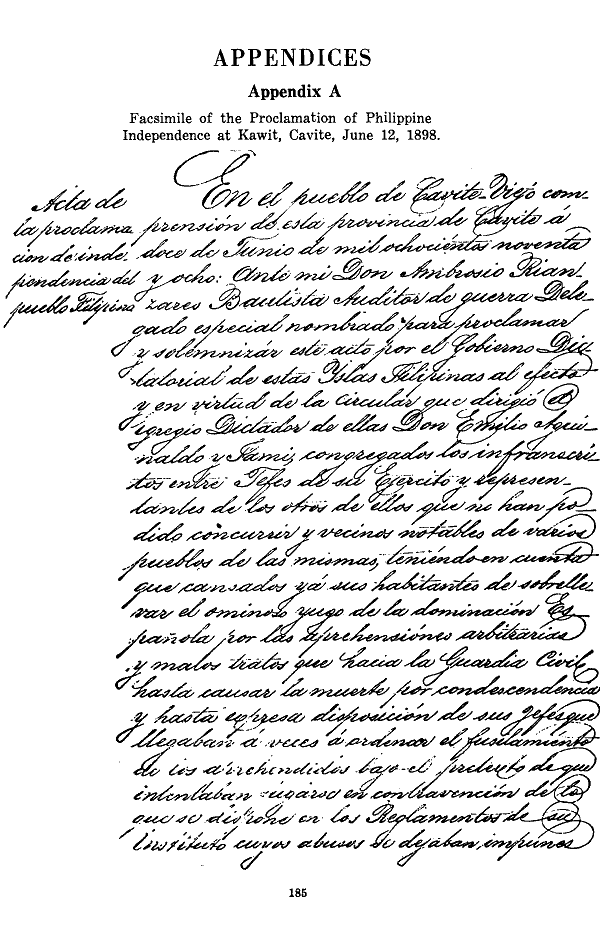 APPENDICES
Appendix A
Facsimile of the Proclamation of Philippine
Independence at Kawit, Cavite, June 12, 1898.
Acta de
la proclama
cion de inde
pendencia del
pueblo Filipino
En el pueblo de Cavite-Viejo com-
prensión de esta provincia de Cavite á
doce de Junio de mil ochocientos noventa
y ocho: Ante mi Don Ambrosio Rian-
zares Bautista Auditor de guerra Dele-
gado especial nombrado para proclamar
y solemnizár este acto por el Gobierno Dic-
tatorial de estas Yslas Filipinas al efecto
y en virtud de la circular que dirigió el
egregio Dictador de ellas Don Emilio Agui-
naldo y Famy, congregados los infranscri-
tos entre Jefes de su Ejercito y represen-
tantes de los otros de ellos que no han po-
dido concurrir y vecinos notables de varios
pueblos de las mismas, teniéndo en cuenta
que cansados yá sus habitantes de sobrelle-
var el ominoso yugo de la dominación Es-
pañola por las aprehensiónes arbitrarias
y malos tratos que hacia la Guardia Civil
hasta causar la muerte por condescendencia
y hasta expresa disposición de sus gefes que
llegaban á veces á ordenar el fusilamiento
de los aprehendidos bajo el pretexto de que
intentaban fugarse en contravención de lo
que se dispone en los Reglamentos de su
Instituto cuyos abusos se dejaban, impunes
185